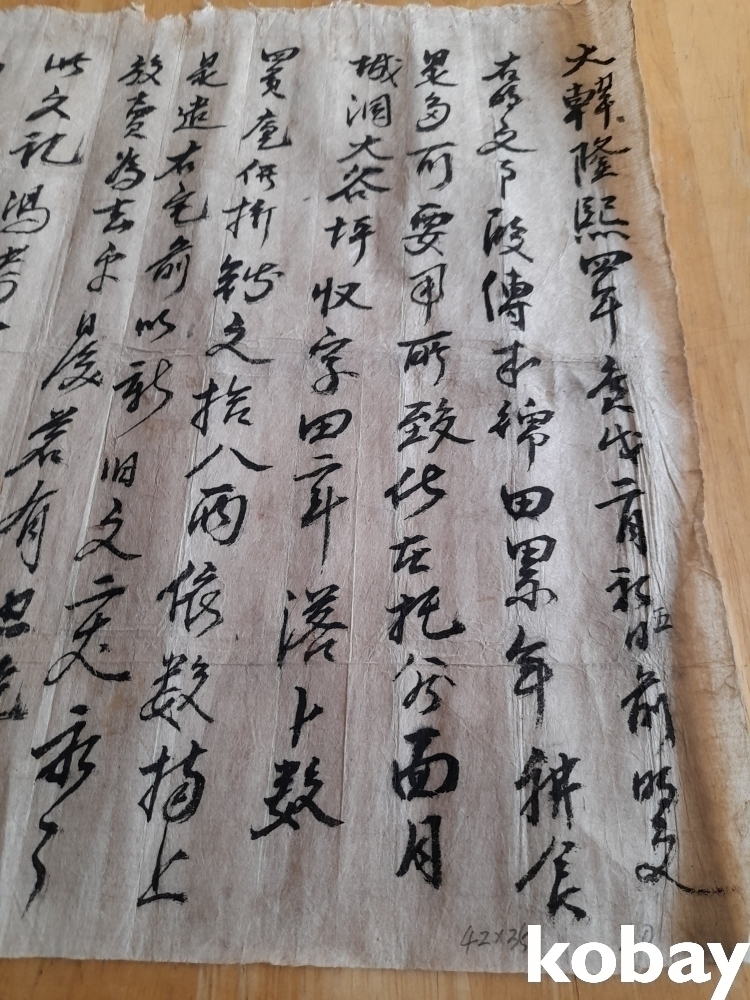 大韓隆熙四年庚戌二月初五日前明文
右明文事段傳來 田累年耕食
是多可要用所致 在 面月
城洞大谷坪收字田二斗落卜數
四負 折錢文拾八兩依數捧上
是遣右宅前以新旧文二丈永永
放賣爲去乎日後若有
此文記憑考
42×35
①
kobay